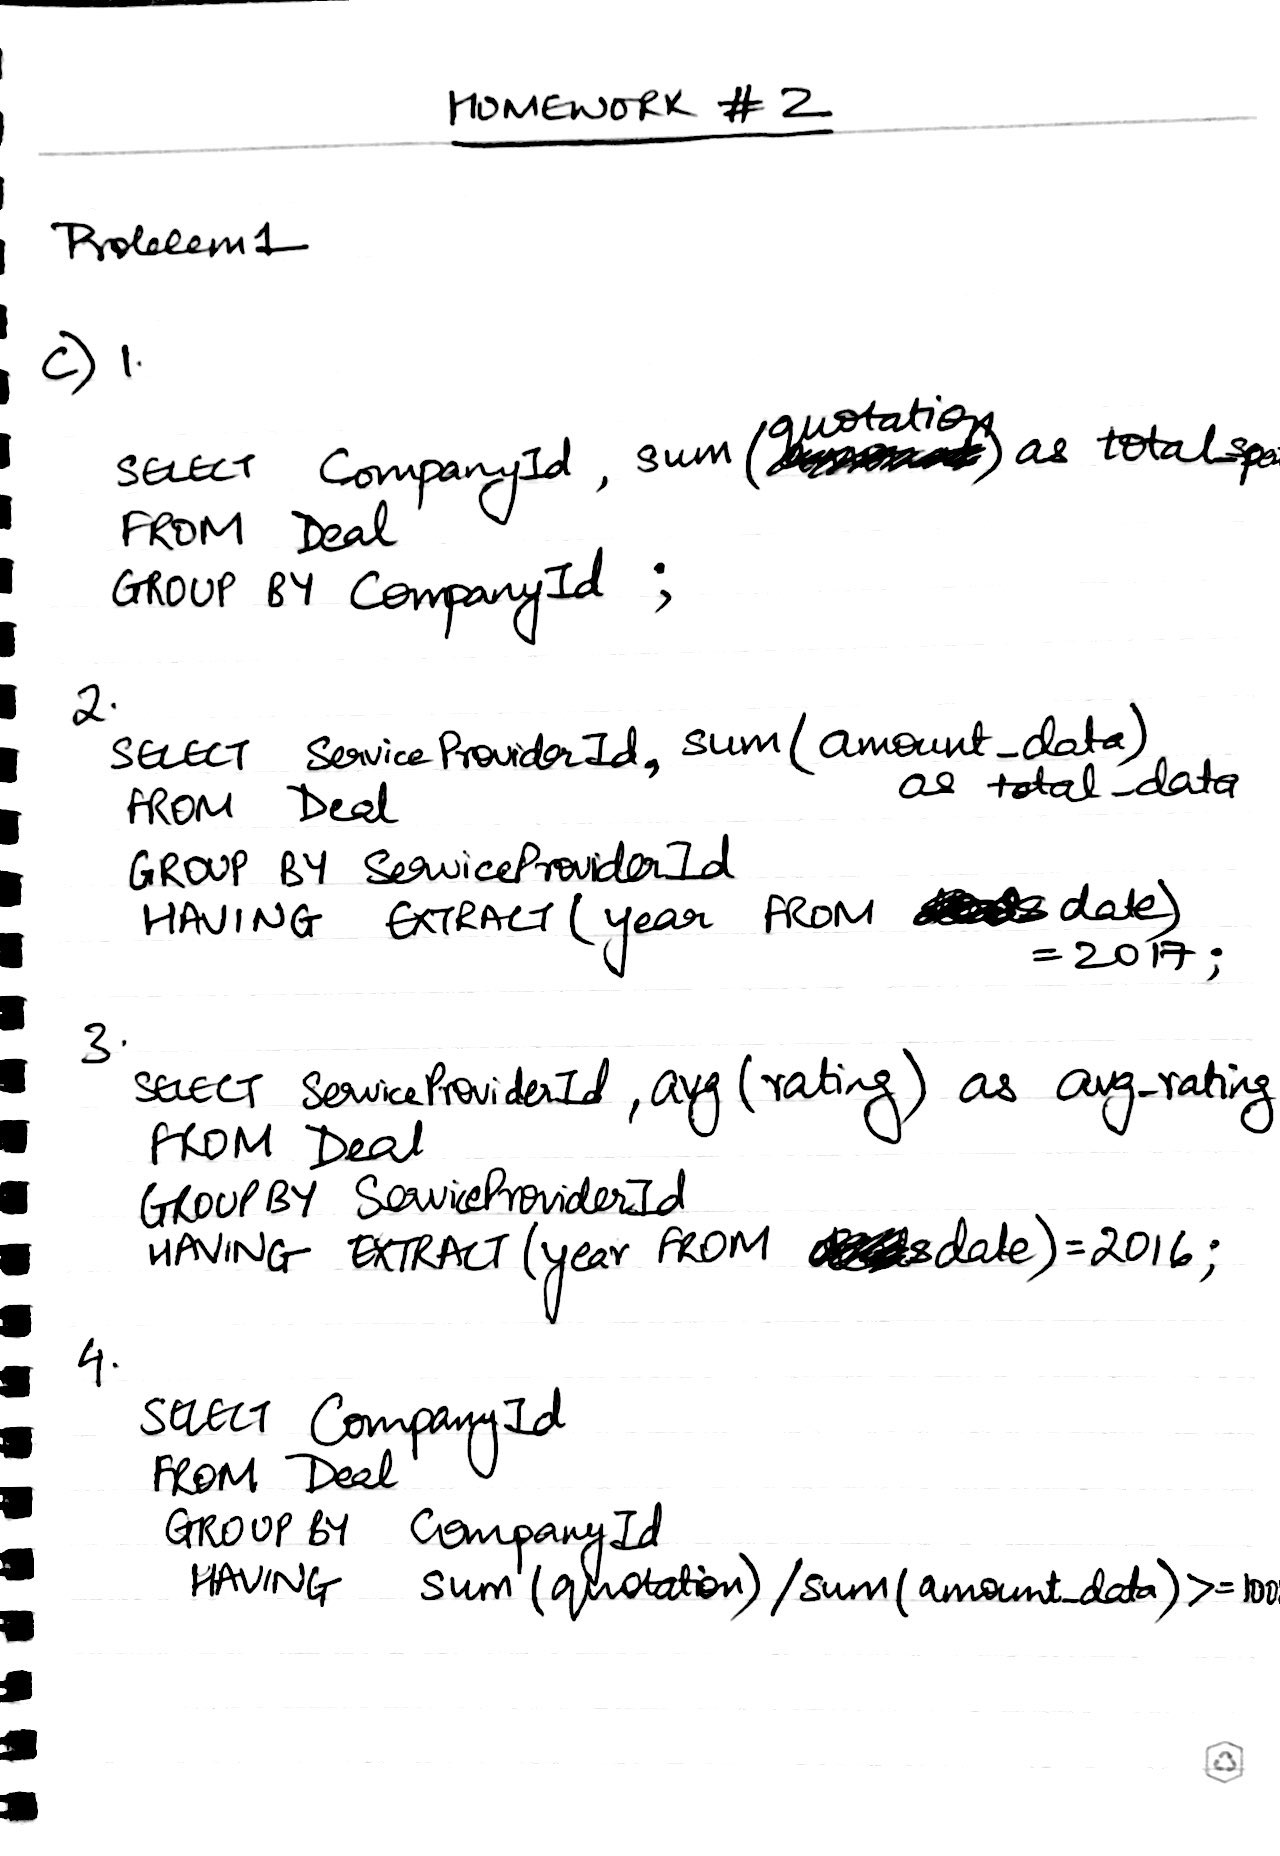 HOMEWORK # 2
Problem 1
C) 1.
SELECT CompanyId, sum(quotation) as total_spe
FROM Deal
GROUP BY CompanyId ;
2.
SELECT ServiceProviderId, sum(amount_data)
as total_data
FROM Deal
GROUP BY ServiceProviderId
HAVING EXTRACT(year FROM date)
=2017;
3.
SELECT ServiceProviderId, avg(rating) as avg_rating
FROM Deal
GROUP BY ServiceProviderId
HAVING EXTRACT(year FROM date)=2016;
4.
SELECT CompanyId
FROM Deal
GROUP BY CompanyId
HAVING sum(quotation)/sum(amount_data)>=100